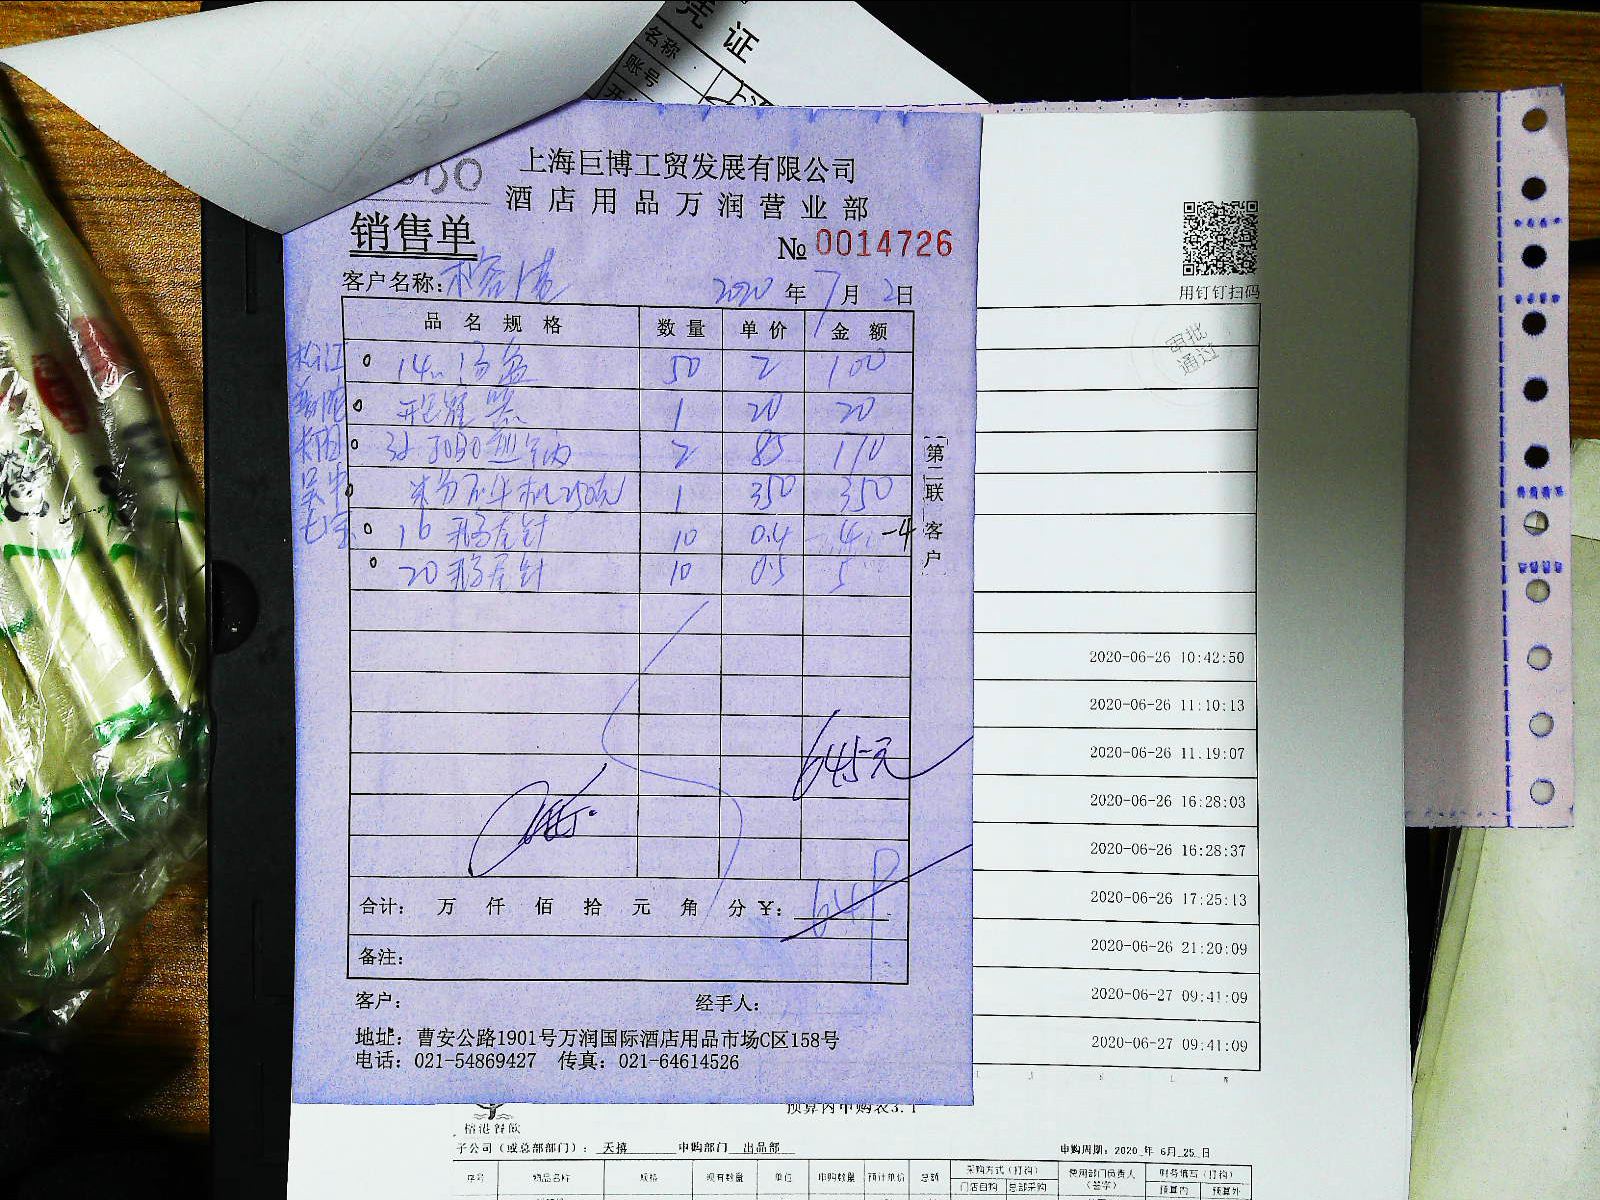 凭证
名称
账号
上海巨博工贸发展有限公司
酒店用品万润营业部
销售单
№ 0014726
客户名称: 榕港
2020 年 7 月 2 日
品名规格 数量 单价 金额
松江 50 2 100
普陀 开 器 1 20 20
2 85 170
吴中 1 350 350
七宝 16 鹅尾针 10 0.4 4 -4
20 鹅尾针 10 0.5 5
645元
合计: 万 仟 佰 拾 元 角 分 ¥: 649
备注:
客户: 经手人:
地址: 曹安公路1901号万润国际酒店用品市场C区158号
电话: 021-54869427 传真: 021-64614526
第二联 客户
用钉钉扫码
审批
通过
2020-06-26 10:42:50
2020-06-26 11:10:13
2020-06-26 11.19:07
2020-06-26 16:28:03
2020-06-26 16:28:37
2020-06-26 17:25:13
2020-06-26 21:20:09
2020-06-27 09:41:09
2020-06-27 09:41:09
预算内申购表3.1
榕港餐饮
子公司（或总部部门）： 天禧 申购部门 出品部 申购周期: 2020 年 6月 25 日
序号 物品名称 规格 现有数量 单位 申购数量 预计单价 总额 采购方式（打钩） 使用部门负责人（签字） 财务填写（打钩）
门店自购 总部采购 预算内 预算外